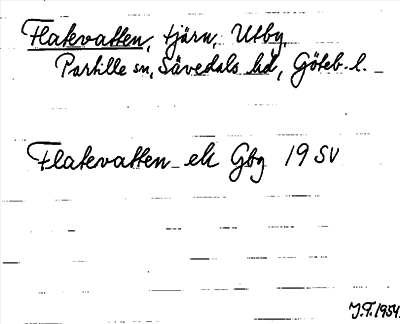 Flatevatten, tjärn, Utby
Partille sn, Sävedals hd, Göteb. l.
Flatevatten ek Gbg 19 SV
J.T. 1954.